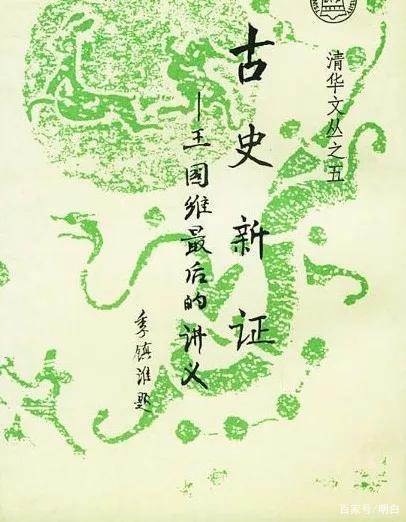 清华文丛之五
古史新证
—王国维最后的讲义
季镇淮题
百家号/明白